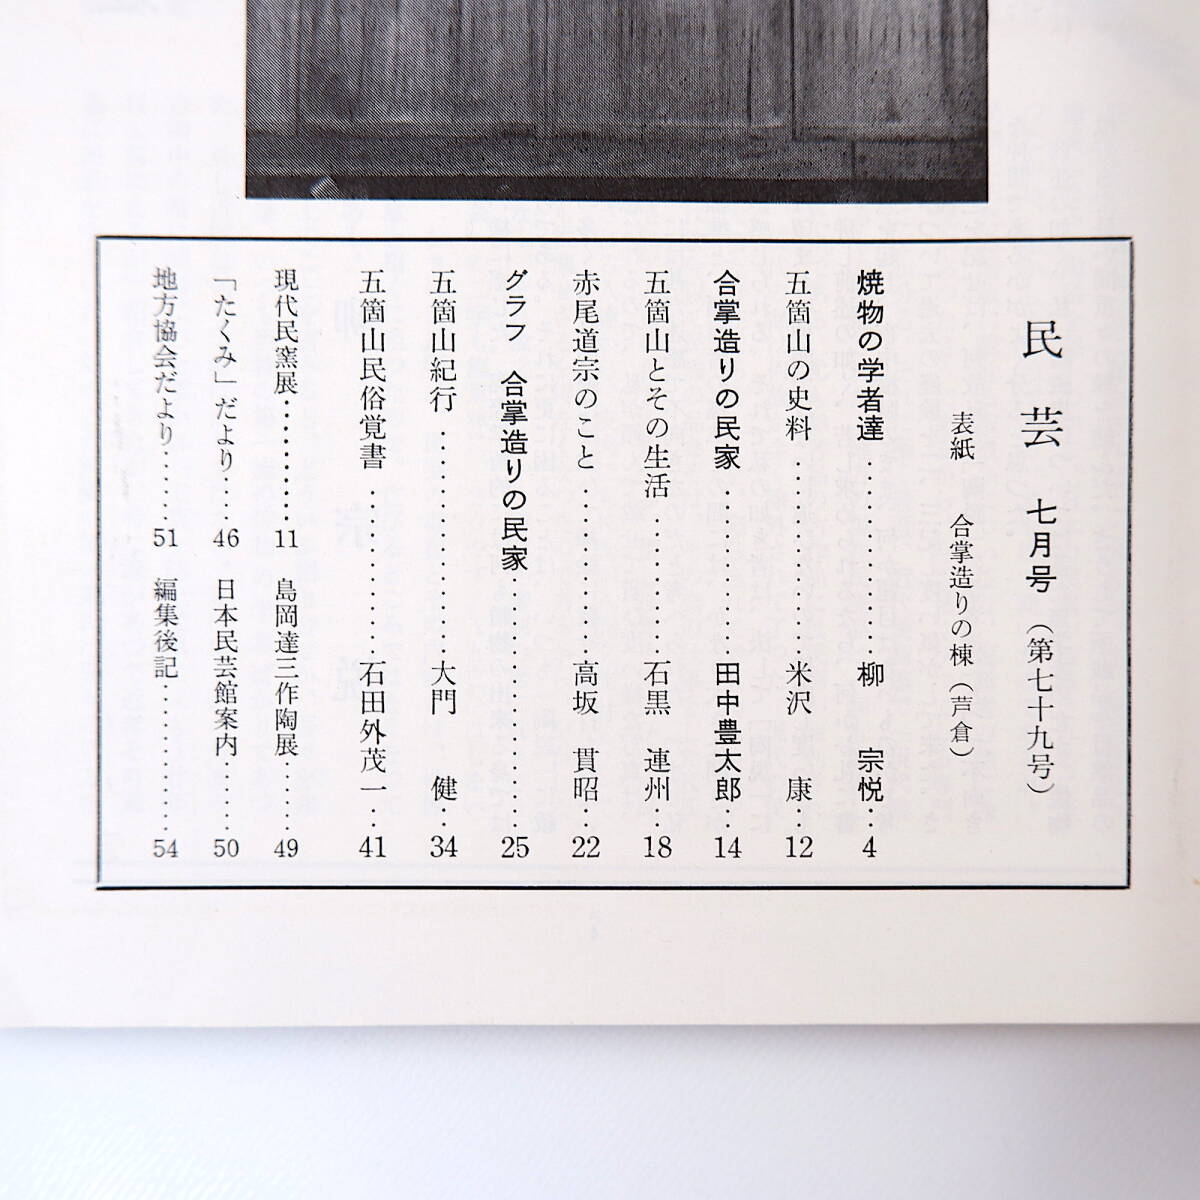 民芸 七月号（第七十九号）
表紙 合掌造りの棟（芦倉）
焼物の学者達………柳 宗悦…4
五箇山の史料………米沢 康…12
合掌造りの民家………田中豊太郎…14
五箇山とその生活………石黒 連州…18
赤尾道宗のこと………高坂 貫昭…22
グラフ 合掌造りの民家………25
五箇山紀行………大門 健…34
五箇山民俗覚書………石田外茂一…41
現代民窯展………11 島岡達三作陶展………49
「たくみ」だより………46 日本民芸館案内………50
地方協会だより………51 編集後記………54